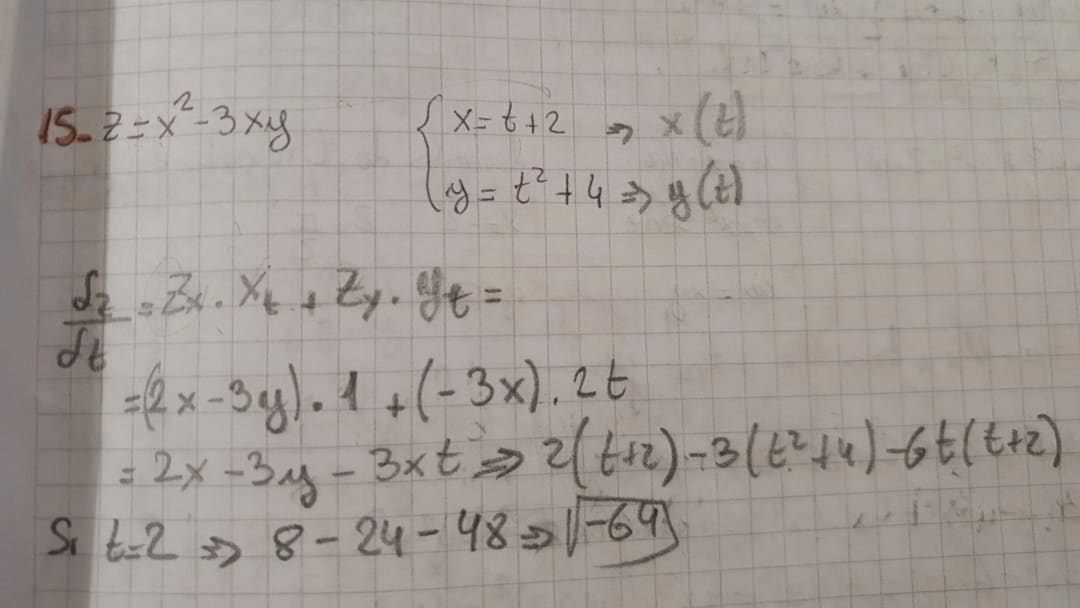 15- z = x² - 3xy { x = t+2 ⇒ x(t)
y = t² + 4 ⇒ y(t)
δz/δt = Zx · Xt + Zy · yt =
= (2x - 3y) · 1 + (-3x) · 2t
= 2x - 3y - 3xt ⇒ 2(t+2) - 3(t²+4) - 6t(t+2)
Si t=2 ⇒ 8 - 24 - 48 ⇒ -64